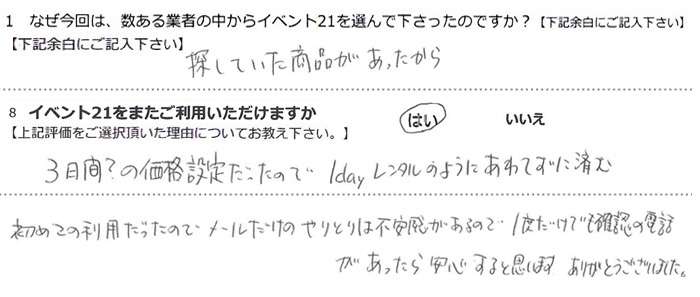 1 なぜ今回は、数ある業者の中からイベント21を選んで下さったのですか?【下記余白にご記入下さい】
【下記余白にご記入下さい】
探していた商品があったから
8 イベント21をまたご利用いただけますか はい いいえ
【上記評価をご選択頂いた理由についてお教え下さい。】
3日間?の価格設定だったので 1dayレンタルのようにあわてずに済む
初めての利用だったので メールだけの やりとりは不安感があるので 1度だけでも確認の電話
があったら 安心すると思います ありがとうございました。